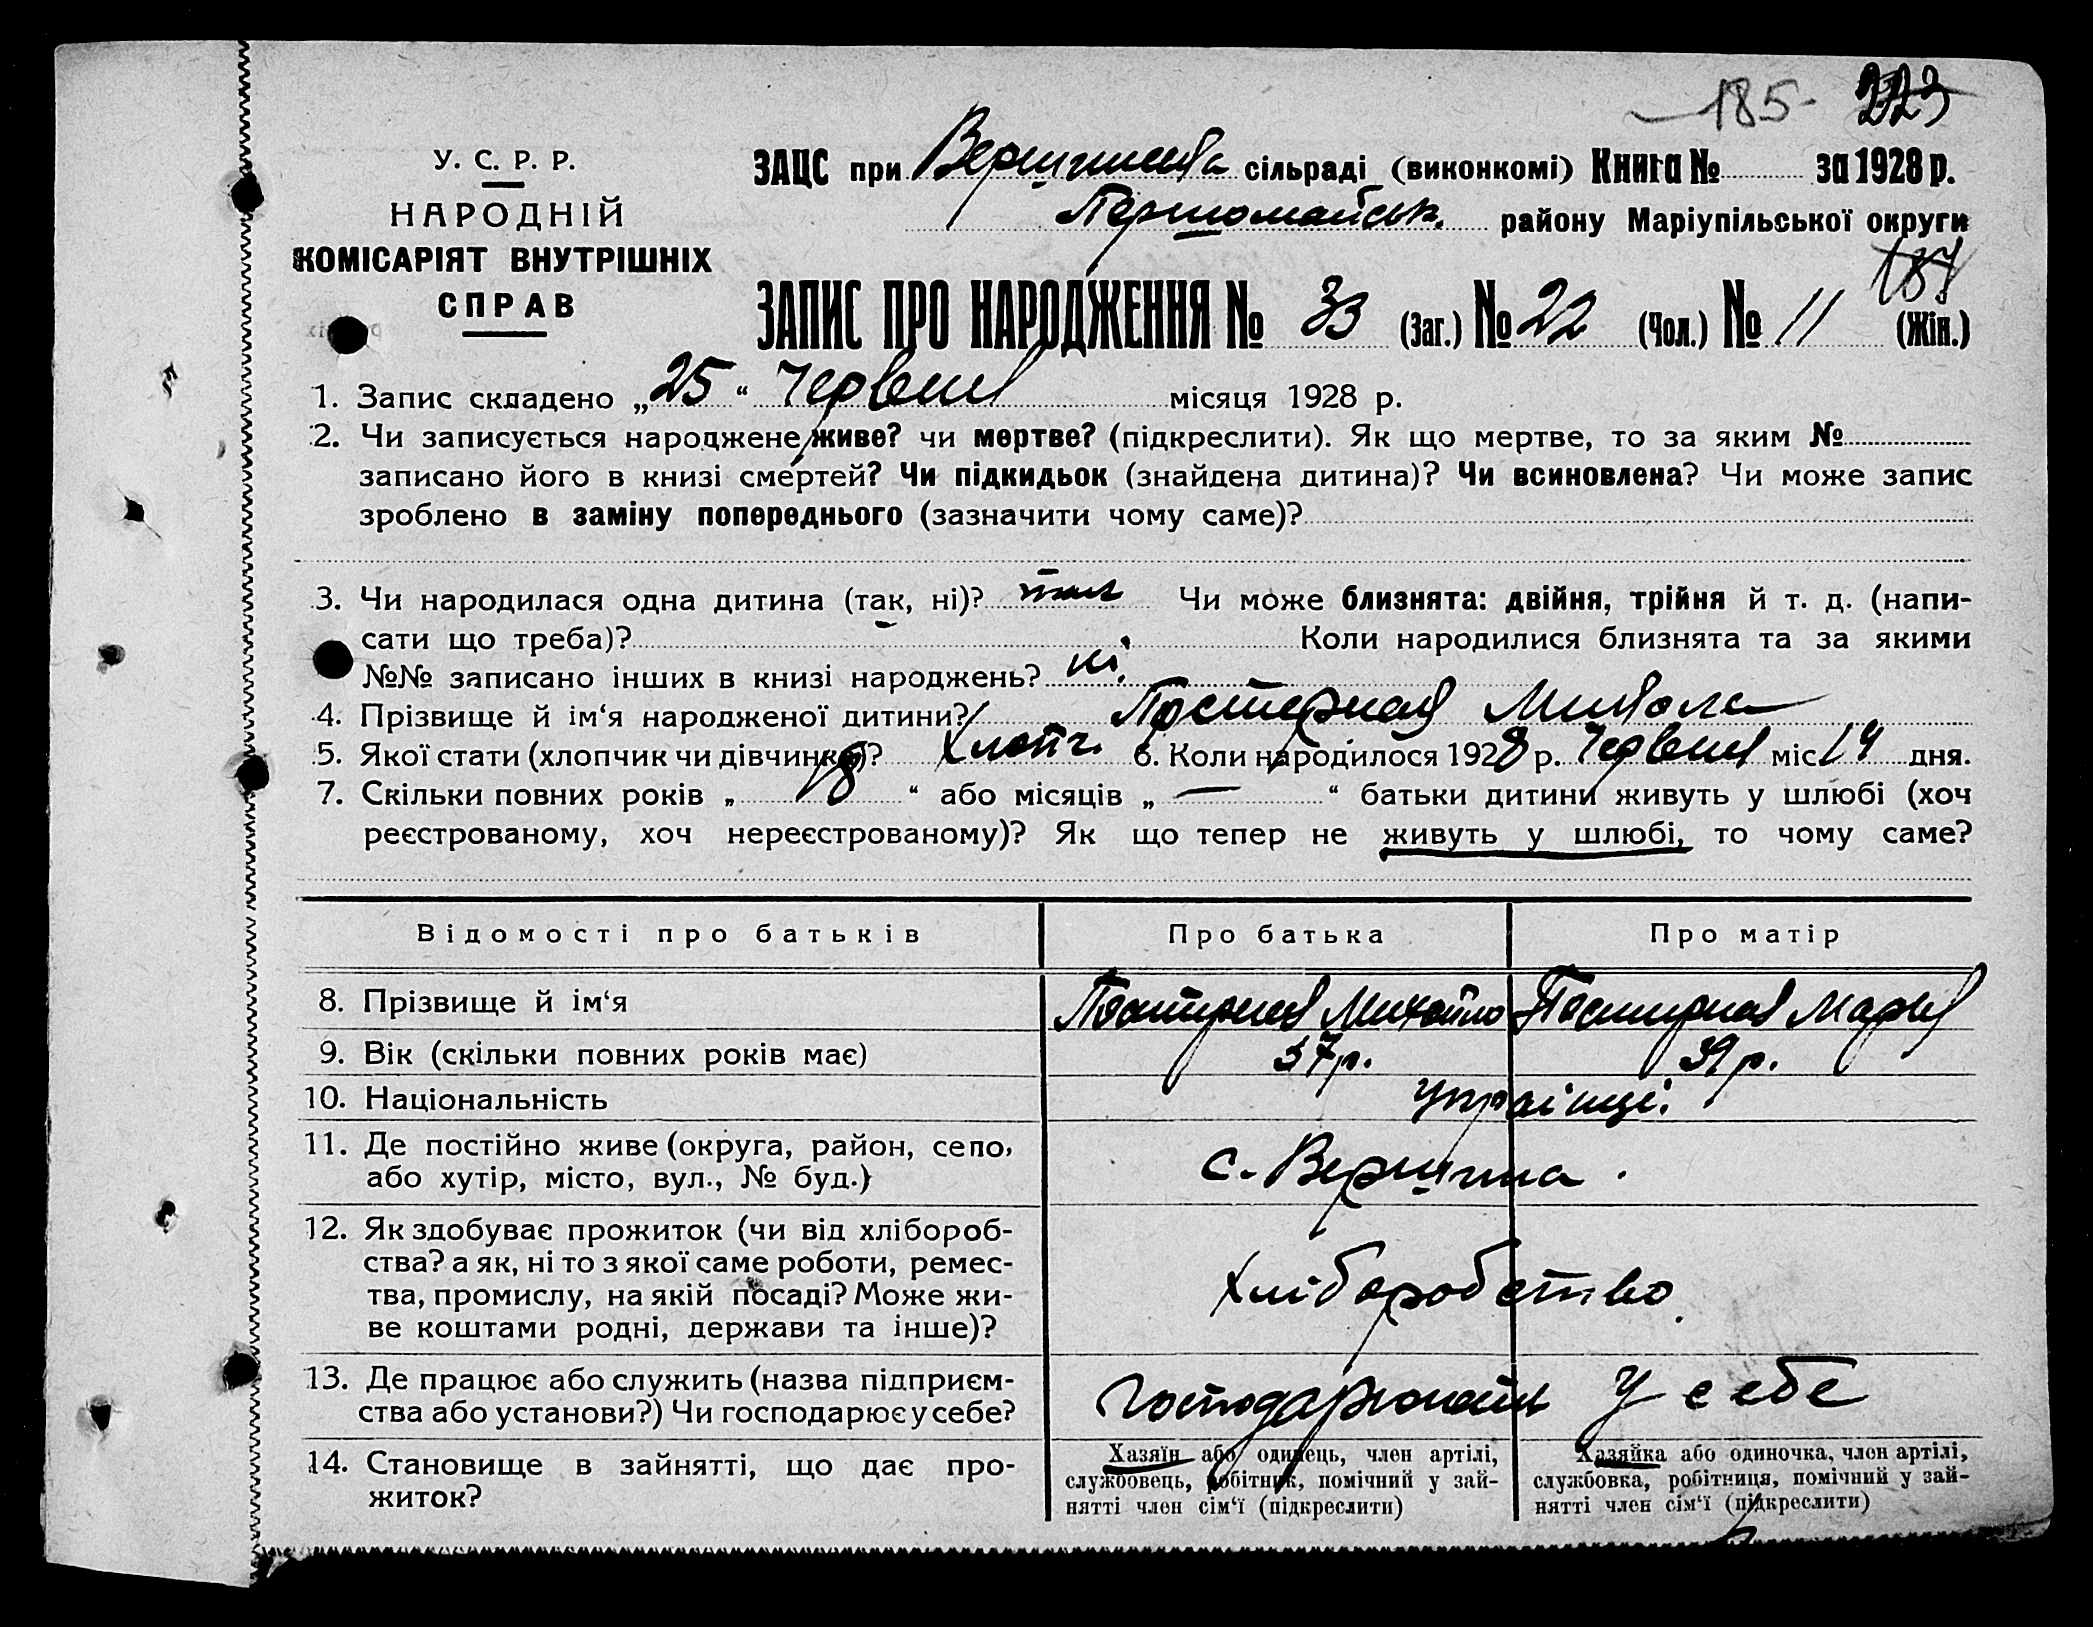 185 223
У. С. Р. Р.
НАРОДНІЙ
КОМІСАРІЯТ ВНУТРІШНІХ
СПРАВ
ЗАЦС при сільраді (виконкомі) Книга № за 1928 р.
Першомайськ. району Маріупільської округи
187
ЗАПИС ПРО НАРОДЖЕННЯ № 33 (Заг.) № 22 (Чол.) № 11 (Жін.)
1. Запис складено „25“ Червня місяця 1928 р.
2. Чи записується народжене живе? чи мертве? (підкреслити). Як що мертве, то за яким №
записано його в книзі смертей? Чи підкидьок (знайдена дитина)? Чи всиновлена? Чи може запис
зроблено в заміну попереднього (зазначити чому саме)?
3. Чи народилася одна дитина (так, ні)? так Чи може близнята: двійня, трійня й т. д. (напи-
сати що треба)? Коли народилися близнята та за якими
№№ записано інших в книзі народжень? ні.
4. Прізвище й ім‘я народженої дитини? Микола
5. Якої стати (хлопчик чи дівчинка)? Хлопч. 6. Коли народилося 1928 р. Червня міс. 14 дня.
7. Скільки повних років „ 18 “ або місяців „ — “ батьки дитини живуть у шлюбі (хоч
реєстрованому, хоч нереєстрованому)? Як що тепер не живуть у шлюбі, то чому саме?
Відомості про батьків Про батька Про матір
8. Прізвище й ім‘я Михайло Мария
9. Вік (скільки повних років має) 37 р. 39 р.
10. Національність українці.
11. Де постійно живе (округа, район, село,
або хутір, місто, вул., № буд.) с. Вершина.
12. Як здобуває прожиток (чи від хлібороб-
ства? а як, ні то з якої саме роботи, ремес-
тва, промислу, на якій посаді? Може жи-
ве коштами родні, держави та інше)? Хліборобство.
13. Де працює або служить (назва підприєм-
ства або установи?) Чи господарює у себе? у себе
14. Становище в зайнятті, що дає про-
житок?
Хазяїн або одинець, член артілі,
службовець, робітник, помічний у зай-
нятті член сім‘ї (підкреслити)
Хазяйка або одиночка, член артілі,
службовка, робітниця, помічний у зай-
нятті член сім‘ї (підкреслити)